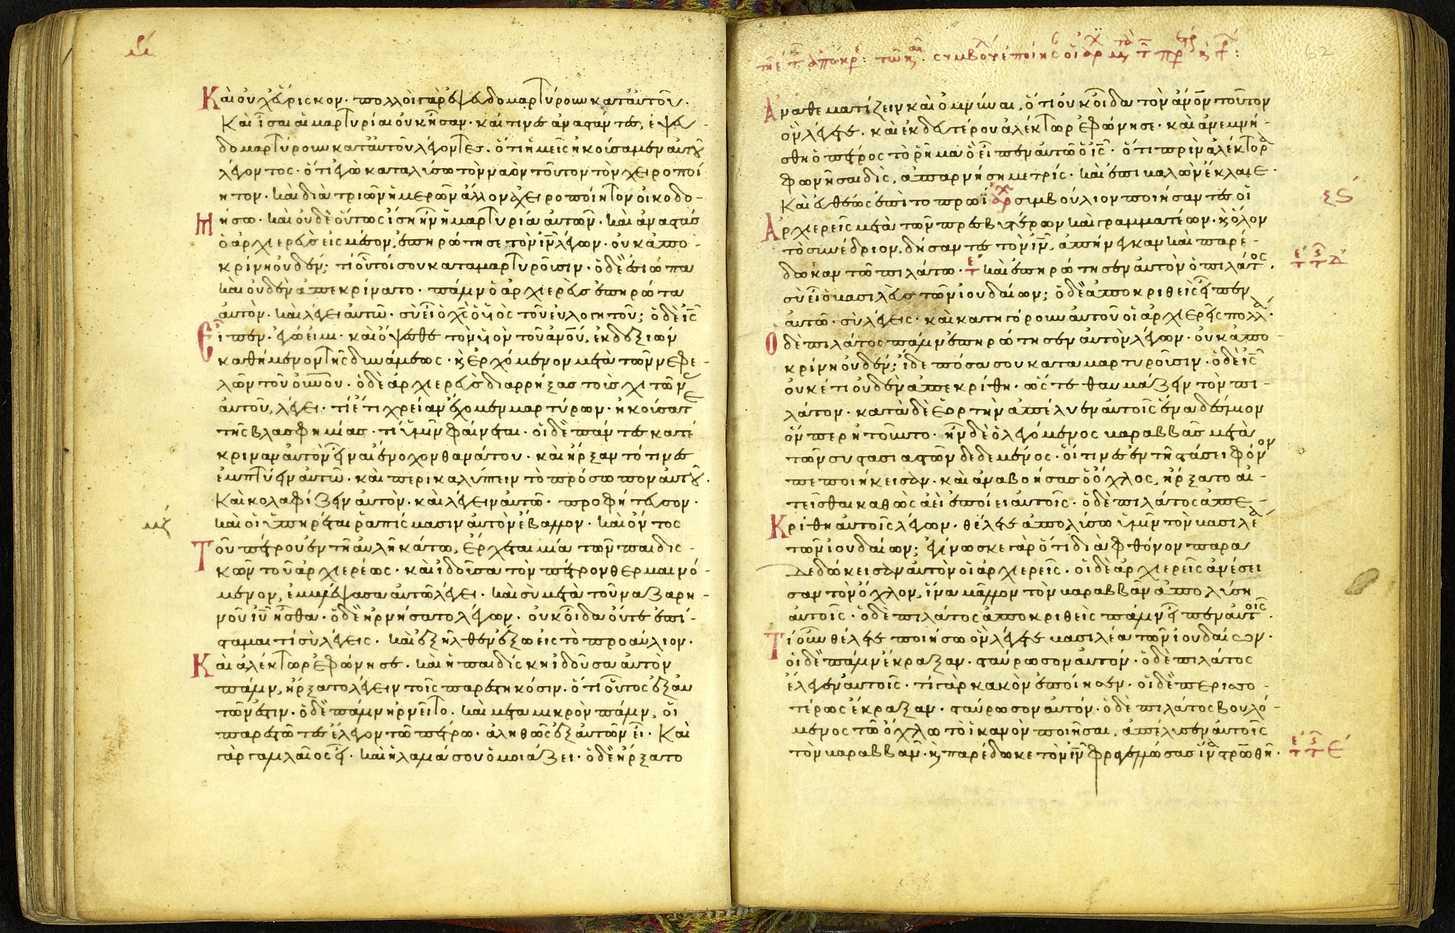 Καὶ οὐχ εὕρισκον· πολλοὶ γὰρ ἐψευδομαρτύρουν κατ' αὐτοῦ·
Καὶ ἴσαι αἱ μαρτυρίαι οὐκ ἦσαν· καί τινες ἀναστάντες, ἐψευ-
δομαρτύρουν κατ' αὐτοῦ λέγοντες· ὅτι ἡμεῖς ἠκούσαμεν αὐτοῦ
λέγοντος· ὅτι ἐγὼ καταλύσω τὸν ναὸν τοῦτον τὸν χειροποί
ητον· καὶ διὰ τριῶν ἡμερῶν ἄλλον ἀχειροποίητον οἰκοδο-
μήσω· καὶ οὐδὲ οὕτως ἴση ἦν ἡ μαρτυρία αὐτῶν· καὶ ἀναστὰς
ὁ ἀρχιερεὺς εἰς μέσον, ἐπηρώτησε τὸν ἰν λέγων· οὐκ ἀπο-
κρίνῃ οὐδέν; τί οὗτοί σου καταμαρτυροῦσιν· ὁ δὲ ἐσιώπα
καὶ οὐδὲν ἀπεκρίνατο· πάλιν ὁ ἀρχιερεὺς ἐπηρώτα
αὐτὸν· καὶ λέγει αὐτῶ· σὺ εἶ ὁ χς ὁ υἱὸς τοῦ εὐλογητοῦ; ὁ δὲ ις
εἶπεν· ἐγώ εἰμι· καὶ ὄψεσθε τὸν υἱὸν τοῦ ἀνου, ἐκ δεξιῶν
καθήμενον τῆς δυνάμεως· κ ἐρχόμενον μετὰ τῶν νεφε-
λῶν τοῦ οὐνου· ὁ δὲ ἀρχιερεὺς διαρρήξας τοὺς χιτῶνας
αὐτοῦ, λέγει· τί ἔτι χρείαν ἔχομεν μαρτύρων· ἠκούσατε
τῆς βλασφημίας· τί ὑμῖν φαίνεται· οἱ δὲ πάντες κατέ
κριναν αὐτὸν εἶναι ἔνοχον θανάτου· καὶ ἤρξαντό τινες
ἐμπτύειν αὐτῶ· καὶ περικαλύπτειν τὸ πρόσωπον αὐτοῦ·
Καὶ κολαφίζειν αὐτὸν· καὶ λέγειν αὐτῶ· προφήτευσον·
καὶ οἱ ὑπηρέται ῥαπίσμασιν αὐτὸν ἔβαλλον· καὶ ὄντος
Τοῦ πέτρου ἐν τῆ αὐλῆ κάτω, ἔρχεται μία τῶν παιδισ-
κῶν τοῦ ἀρχιερέως· καὶ ἰδοῦσα τὸν πέτρον θερμαινό-
μενον, ἐμβλέψασα αὐτῶ λέγει· καὶ σὺ μετὰ τοῦ ναζαρη-
νοῦ ιυ ἦσθα· ὁ δὲ ἠρνήσατο λέγων· οὐκ οἶδα οὔτε ἐπί-
σταμαι τί σὺ λέγεις· καὶ ἐξῆλθεν ἔξω εἰς τὸ προαύλιον·
Καὶ ἀλέκτωρ ἐφώνησε· καὶ ἡ παιδίσκη ἰδοῦσα αὐτὸν
πάλιν, ἤρξατο λέγειν τοῖς παρεστηκόσιν· ὅτι οὗτος ἐξ αυ
τῶν ἐστιν· ὁ δὲ πάλιν ἠρνεῖτο· καὶ μετὰ μικρὸν πάλιν, οἱ
παρεστῶτες ἔλεγον τῶ πέτρω· ἀληθῶς ἐξ αὐτῶν εἶ· Καὶ
γὰρ γαλιλαῖος εἶ· καὶ ἡ λαλιά σου ὁμοιάζει· ὁ δὲ ἤρξατο
μζ
62
Ἀναθεματίζειν καὶ ὀμνύναι, ὅτι οὐκ οἶδα τὸν ανον τοῦτον
ὃν λέγετε· καὶ ἐκ δευτέρου ἀλέκτωρ ἐφώνησε· καὶ ἀνεμνή-
σθη ὁ πέτρος τὸ ῥῆμα ὃ εἶπεν αὐτῶ ὁ ις· ὅτι πρὶν ἀλέκτορα
φωνῆσαι δὶς, ἀπαρνήση με τρίς· καὶ ἐπιβαλὼν ἔκλαιε·
Καὶ εὐθέως ἐπὶ τὸ πρωῒ συμβούλιον ποιήσαντες οἱ
Ἀρχιερεῖς μετὰ τῶν πρεσβυτέρων καὶ γραμματέων· κ ὅλον
τὸ συνέδριον, δήσαντες τὸν ιν, ἀπήνεγκαν καὶ παρέ-
δωκαν τῶ πιλάτω· καὶ ἐπηρώτησεν αὐτὸν ὁ πιλάτος·
σὺ εἶ ὁ βασιλεὺς τῶν ἰουδαίων; ὁ δὲ ἀποκριθεὶς εἶπεν
αὐτῶ· σὺ λέγεις· καὶ κατηγόρουν αὐτοῦ οἱ ἀρχιερεῖς πολλά·
Ὁ δὲ πιλάτος πάλιν ἐπηρώτησεν αὐτὸν λέγων· οὐκ ἀπο-
κρίνη οὐδέν; ἴδε πόσα σου καταμαρτυροῦσιν· ὁ δὲ ις
οὐκέτι οὐδὲν ἀπεκρίθη· ὥστε θαυμάζειν τὸν πι-
λάτον· κατὰ δὲ ἑορτὴν ἀπέλυεν αὐτοῖς ἕνα δέσμιον
ὅνπερ ἠτοῦντο· ἦν δὲ ὁ λεγόμενος βαραββᾶς μετὰ
τῶν συστασιαστῶν δεδεμένος· οἵτινες ἐν τῆ στάσει φόνον
πεποιήκεισαν· καὶ ἀναβοήσας ὁ ὄχλος, ἤρξατο αἰ-
τεῖσθαι καθὼς ἀεὶ ἐποίει αὐτοῖς· ὁ δὲ πιλάτος ἀπε-
Κρίθη αὐτοῖς λέγων· θέλετε ἀπολύσω ὑμῖν τὸν βασιλέα
τῶν ἰουδαίων; ἐγίνωσκε γὰρ ὅτι διὰ φθόνον παρα
δεδώκεισαν αὐτὸν οἱ ἀρχιερεῖς· οἱ δὲ ἀρχιερεῖς ἀνέσει
σαν τὸν ὄχλον, ἵνα μᾶλλον τὸν βαραββᾶν ἀπολύση
αὐτοῖς· ὁ δὲ πιλάτος ἀποκριθεὶς πάλιν εἶπεν αὐτοῖς·
Τί οὖν θέλετε ποιήσω ὃν λέγετε βασιλέα τῶν ἰουδαίων·
οἱ δὲ πάλιν ἔκραξαν· σταύρωσον αὐτόν· ὁ δὲ πιλάτος
ἔλεγεν αὐτοῖς· τί γὰρ κακὸν ἐποίησεν· οἱ δὲ περισσο-
τέρως ἔκραξαν· σταύρωσον αὐτόν· ὁ δὲ πιλάτος βουλό-
μενος τῶ ὄχλω τὸ ἱκανὸν ποιῆσαι, ἀπέλυσεν αὐτοῖς
τὸν βαραββᾶν· κ παρέδωκε τὸν ιν φραγελλώσας ἵνα στρωθῆ·